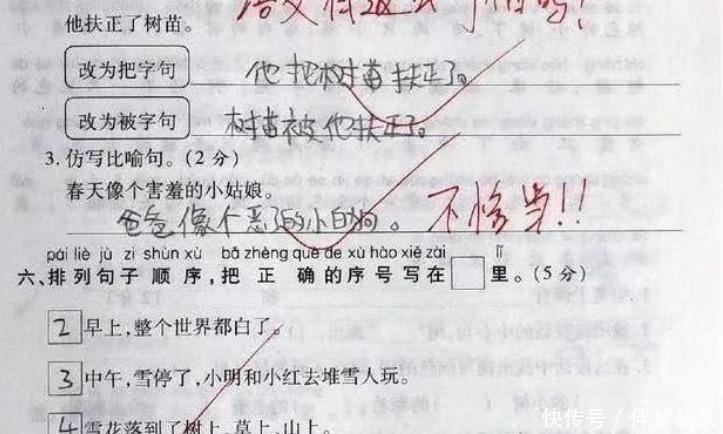 他扶正了树苗。
改为把字句 他把树苗扶正了。
改为被字句 树苗被他扶正了。
3.仿写比喻句。(2分)
春天像个害羞的小姑娘。
爸爸像个恶了的小白狗。 不恰当!!
pái liè jù zi shùn xù bǎ zhèng què de xù hào xiě zài lǐ
六、排列句子顺序,把正确的序号写在□里。(5分)
2 早上,整个世界都白了。
3 中午,雪停了,小明和小红去堆雪人玩。
4 雪花落到了树上、草上、山上。
快传号/伴梦长久